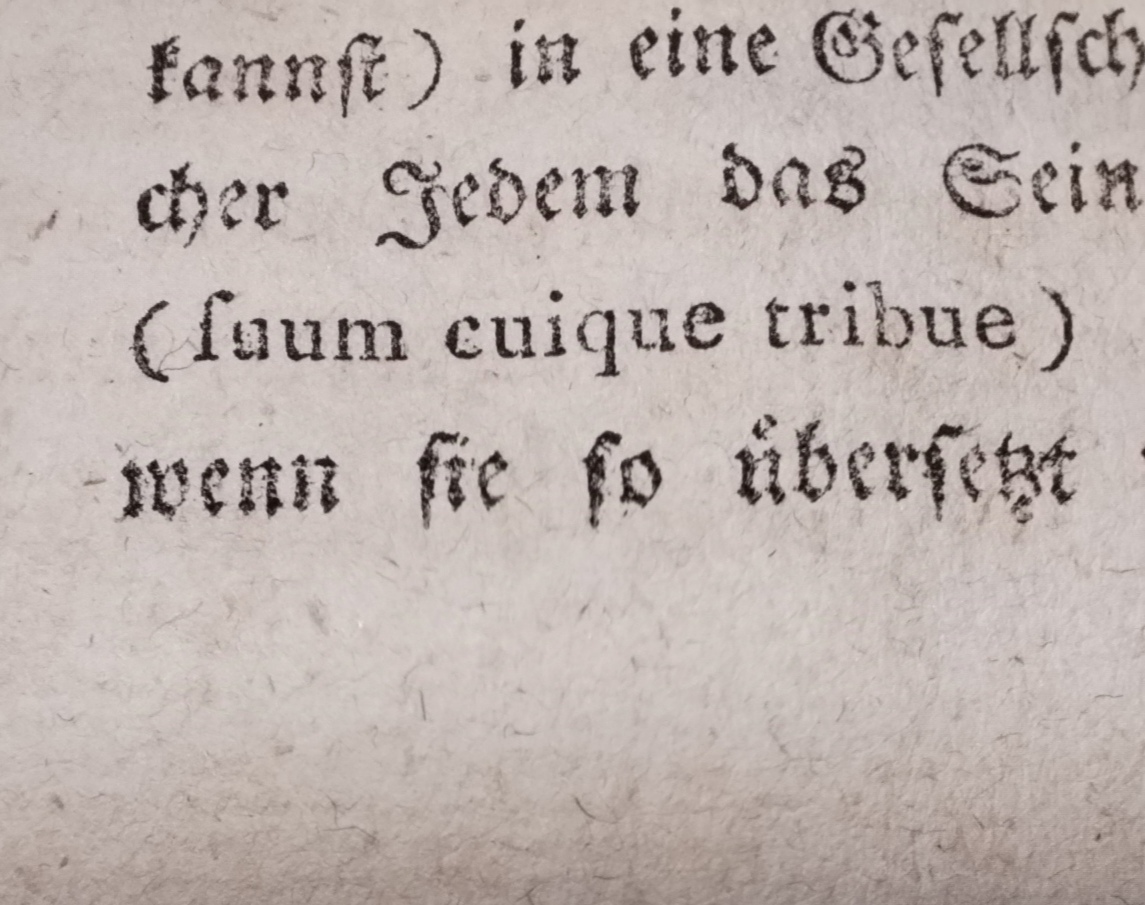 kannſt) in eine Geſellſch
cher Jedem das Sein
(ſuum cuique tribue)
wenn ſie ſo uͤberſetzt